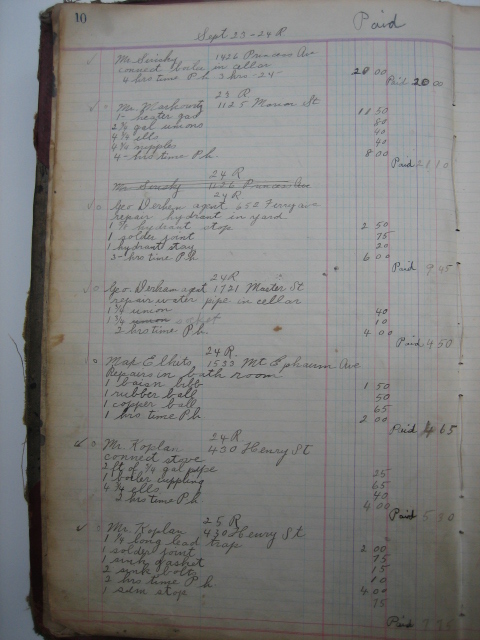 10
Sept 23-24 R Paid
Mr Suisky 1426 Princess Ave
connect boiler in cellar
4 hrs time P.h 3 hrs -24- 20 00
Paid 20 00
23 R
Mr. Markowitz 1125 Marion St
1- heater gas 11 50
2 3/4 gal unions 80
4 3/4 ells 40
4 3/4 nipples 40
4- hrs time P.h. 8 00
Paid 21 10
24 R
Mr Suisky 1426 Princess Ave
24 R
Geo Derham agst 652 Ferry ave
repair hydrant in yard
1 1/2 hydrant stop 2 50
1 solder joint 75
1 hydrant stay 20
3- hrs time P.h 6 00
Paid 9 45
24 R
Geo. Derham agst 1721 Master St
repair water pipe in cellar
1 3/4 union 40
1 3/4 10
2 hrs time P.h 4 00
Paid 4 50
24 R.
1533 Mt Ephraim Ave
Repairs in bath room
1 basin bibb 1 50
1 rubber ball 50
1 copper ball 65
1 hrs time P.h 2 00
Paid 4 65
24 R
Mr. Koplan 430 Henry St
connect stove
2 ft of 3/4 gal pipe 25
1 boiler cuppling 65
4 3/4 ells 40
2 hrs time P.h 4 00
Paid 5 30
25 R
Mr. Koplan 430 Henry St
1 1/2 long lead trap 2 00
1 solder joint 75
1 sink gasket 15
2 sink bolts 10
2 hrs time P.h 4 00
1 stop 75
Paid 7 75